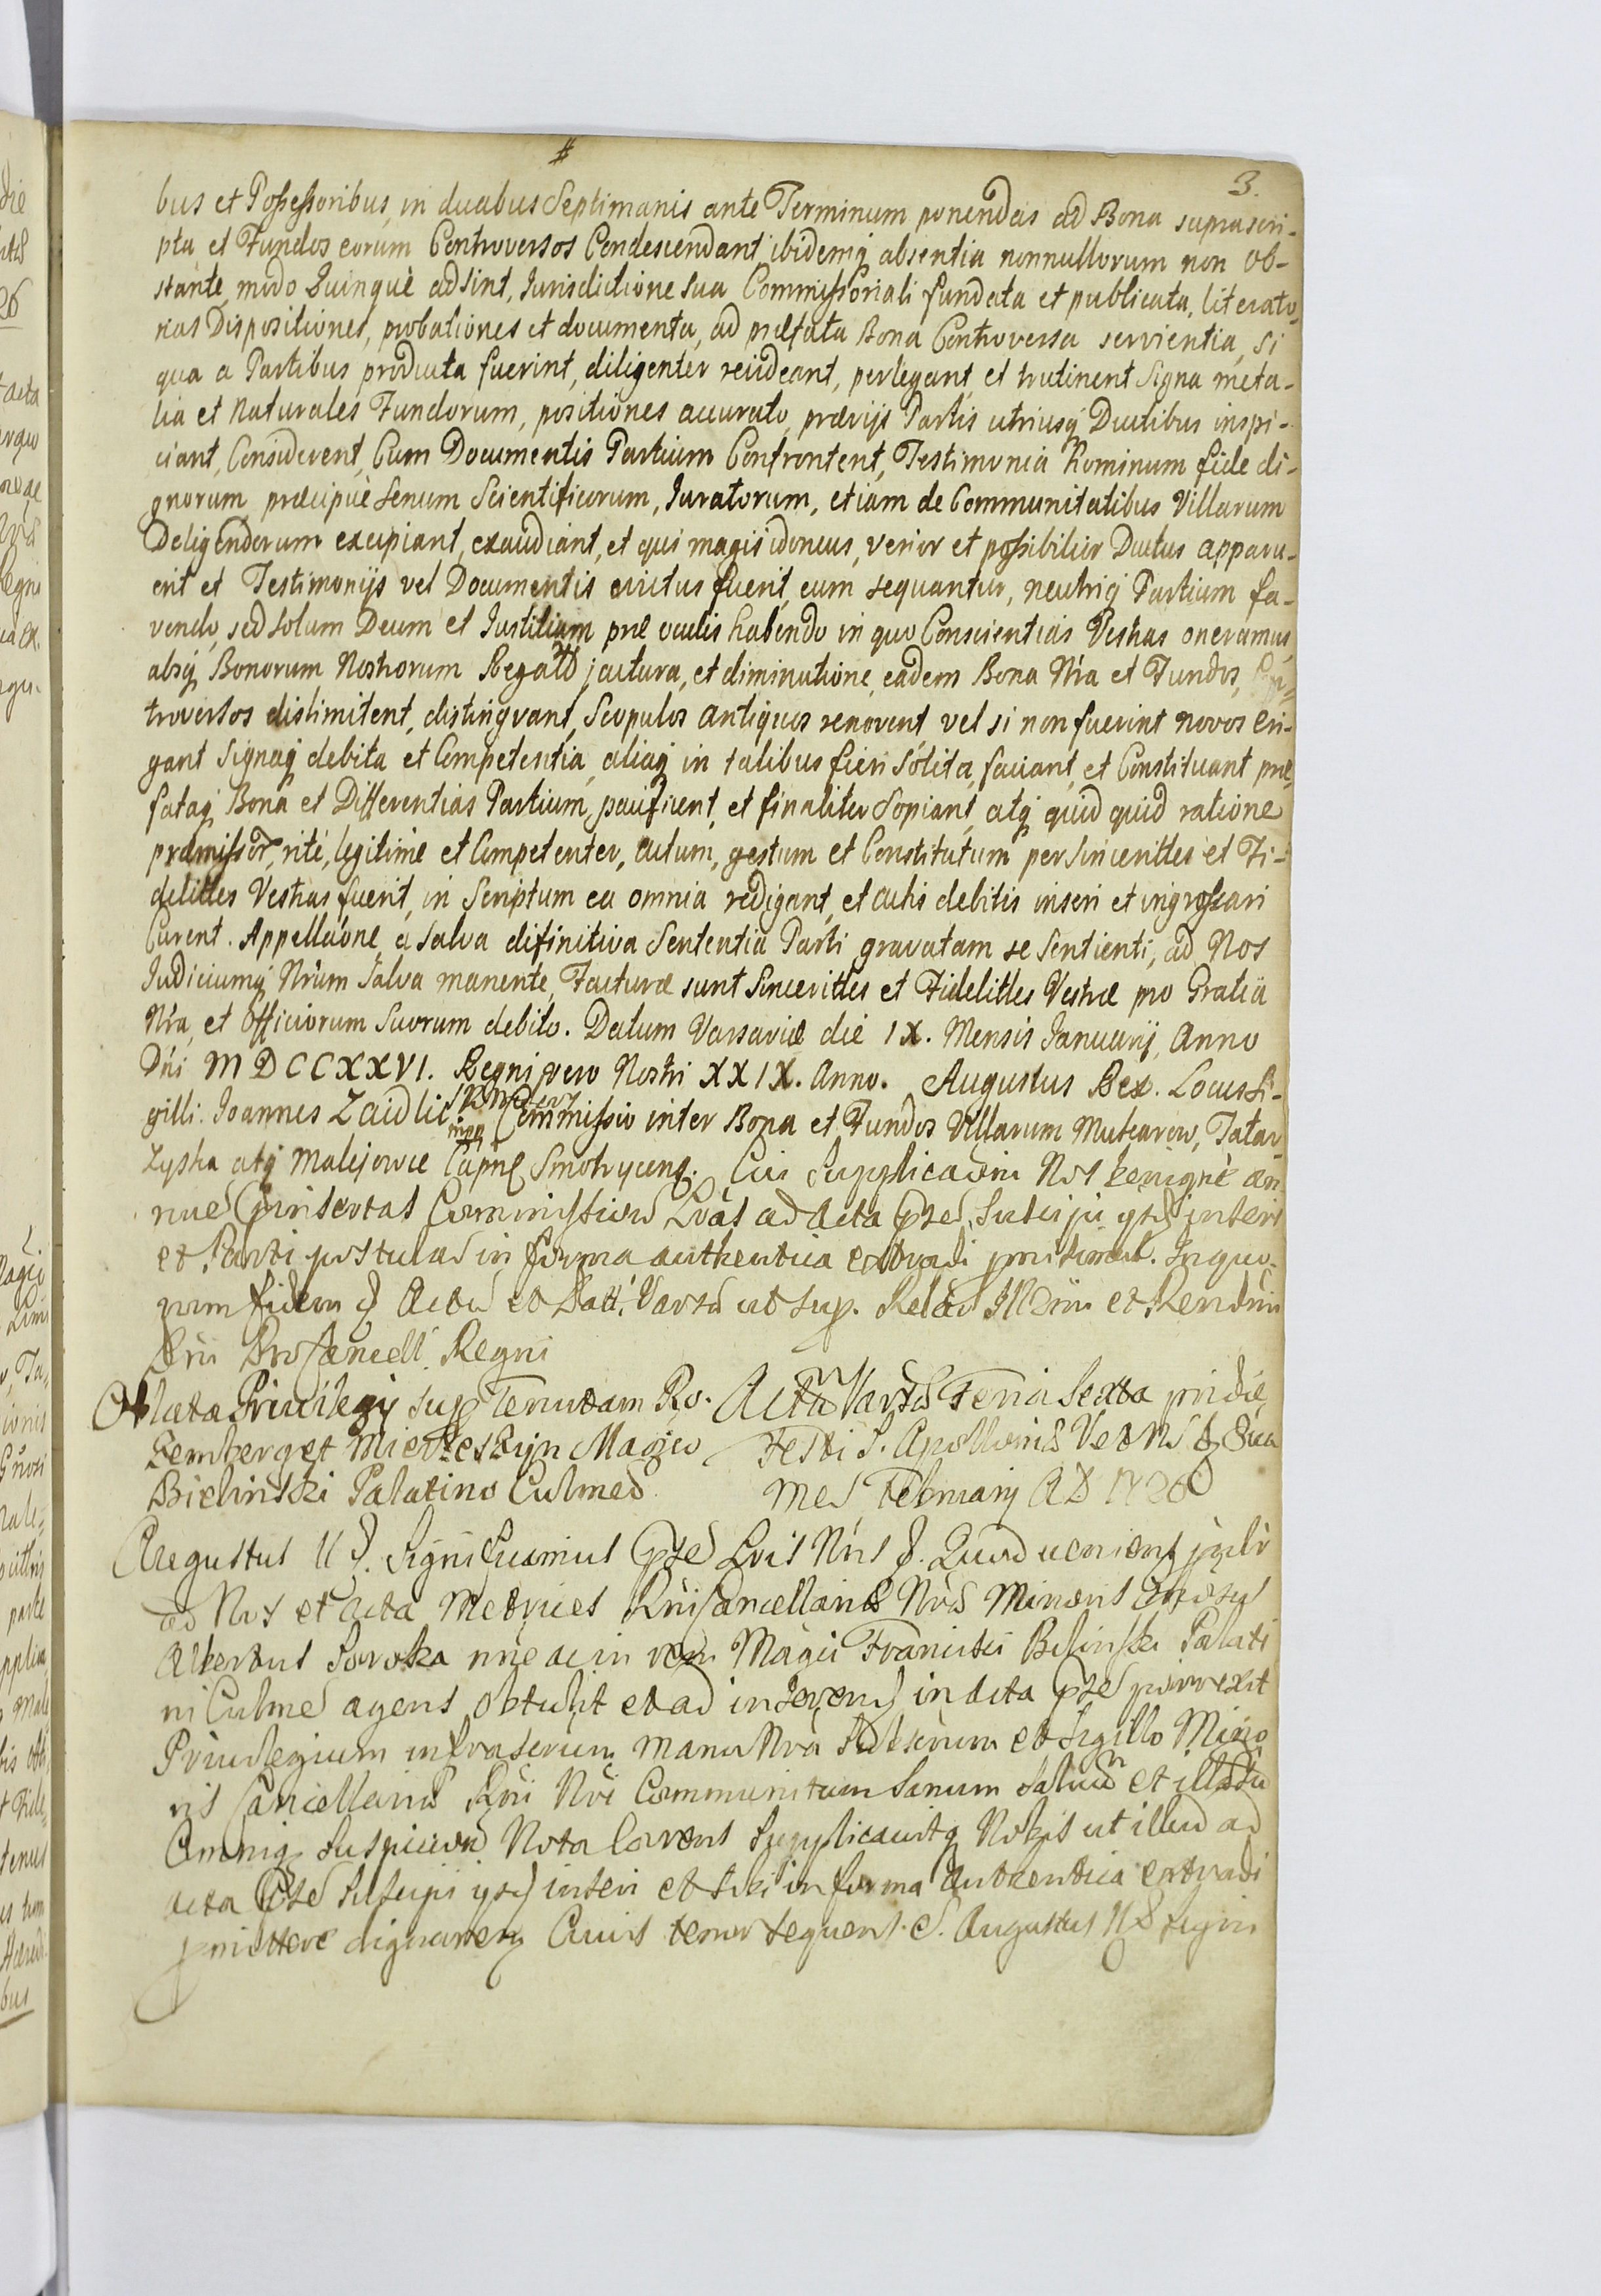 #
3.
bus et Possessoribus in duabus Septimanis ante Terminum ponendas ad Bona suprascri-
pta et Fundos eorum Controversos Condescendant ibidemq absentia nonnullorum non ob-
stante, modo Quinque adsint, Jurisdictione sua Commissoriali fundata et publicata, literato-
rias Dispositiones, probationes et documenta, ad præfata Bona Controversa servientia, si
qua a Partibus producta fuerint, diligenter revideant, perlegant, et trutinent Signa meta-
lia et Naturales Fundorum, positiones accurato, prævijs Partis utriusq Ductibus inspi-
ciant, Considerent, Cum Documentis Partium Confrontent, Testimonia Hominum fide di-
gnorum, præcipuè Senum Scientificorum, Juratorum, etiam de Communitatibus Villarum
Deligendorum excipiant, exaudiant, et qui magis idoneus, verior et possibilior Ductus apparu-
erit et Testimonijs vel Documentis evictus fuerit, eum sequantur, neutriq Partium fa-
vendo, sed solum Deum et Justitiam præ oculis habendo in quo Conscientias Vestras oneramus,
absq Bonorum Nostrorum Regal jactura, et diminutione, eadem Bona Nra et Fundos, Con-
troversos dislimitent, distingvant, Scopulos antiquos renovent, vel si non fuerint novos eri-
gant Signaq debita et Competentia, aliaq in talibus fieri sólita, faciant, et Constituant præ-
fataq Bona et Differentias Partium, pacificent, et finaliter Sopiant, atq quid quid ratione
præmissor, ritè, legitimè et Competenter, actum, gestum et Constitutum per Sinceritts et Fi-
delittes Vestras fuerit, in Scriptum ea omnia redigant, et actis debitis inseri et ingrossari
Curent. Appellaone, a salva difinitiva Sententia Parti gravatam se sentienti, ad Nos
Judiciumq Nrum salva manente, Facturæ sunt Sinceritles et Fidelittes Vestræ pro Gratia
Nra, et Officiorum Suorum debito. Datum Varsaviæ die IX. Mensis Januarij, Anno
Dni MDCCXXVI. Regni vero Nostri XXIX. Anno. Augustus Rex. Locus Si-
gilli. Joannes Zaidlic mpp Commissio inter Bona et Fundos Villarum Mutearow, Tatar-
zyska atq Malejowce Capnę Smotryceng. Cui supplicaoni Nos benignè an
nuen prinsertas Commission Lras ad Acta pñs Suscipi ysq inseri
et Parti postulan in forma authentica extradi prmisimus. In quo
rum fidem Actu et Datt. Vars ut sup. Relao Illmi et Rendmi
Dni ProCancell Regni
Oblata Privilegij sup Tenutam Ro-
Remberg et Mierzeszyn Magco
Bielinski Palatino Culmen
Actu Vars Feria Sexta pridie
Festi S. Apolloniæ
Men Februarij AD 1726
Augustus II. Significamus pñs Lris Nris Quod veniens
ad Nos et Acta Metrices Rni Cancellariæ Nræ Minoris
Albertus Soroka nñe ac in rem Magci Francisci Bielinski Palati
ni Culmen agens obtulit et ad inserend in Acta pñs porrexit
Privilegium infrascriptum manu Nra subscriptum et Sigillo Mino
ris Cancellariæ Rni Nri Communitum Sanum Salvum et illæsu
Omniq suspicion Nota Carens Supplicavitq Nobis ut illud ad
Acta pñs Suscipi ysq inseri et sibi in forma authentica extradi
pmittere dignaremur Cuius tenor sequens. Augustus